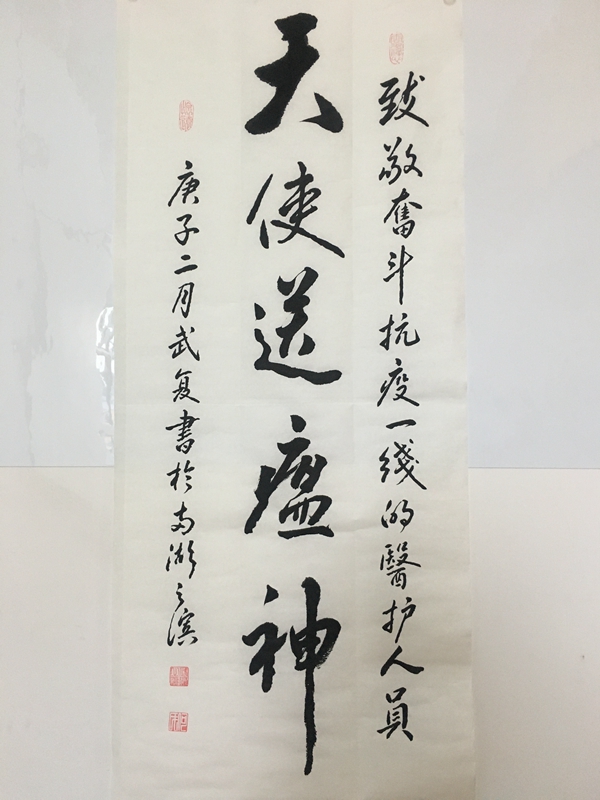 致敬奮斗抗疫一綫的醫护人員
天使送瘟神
庚子二月武复書於南湖之滨